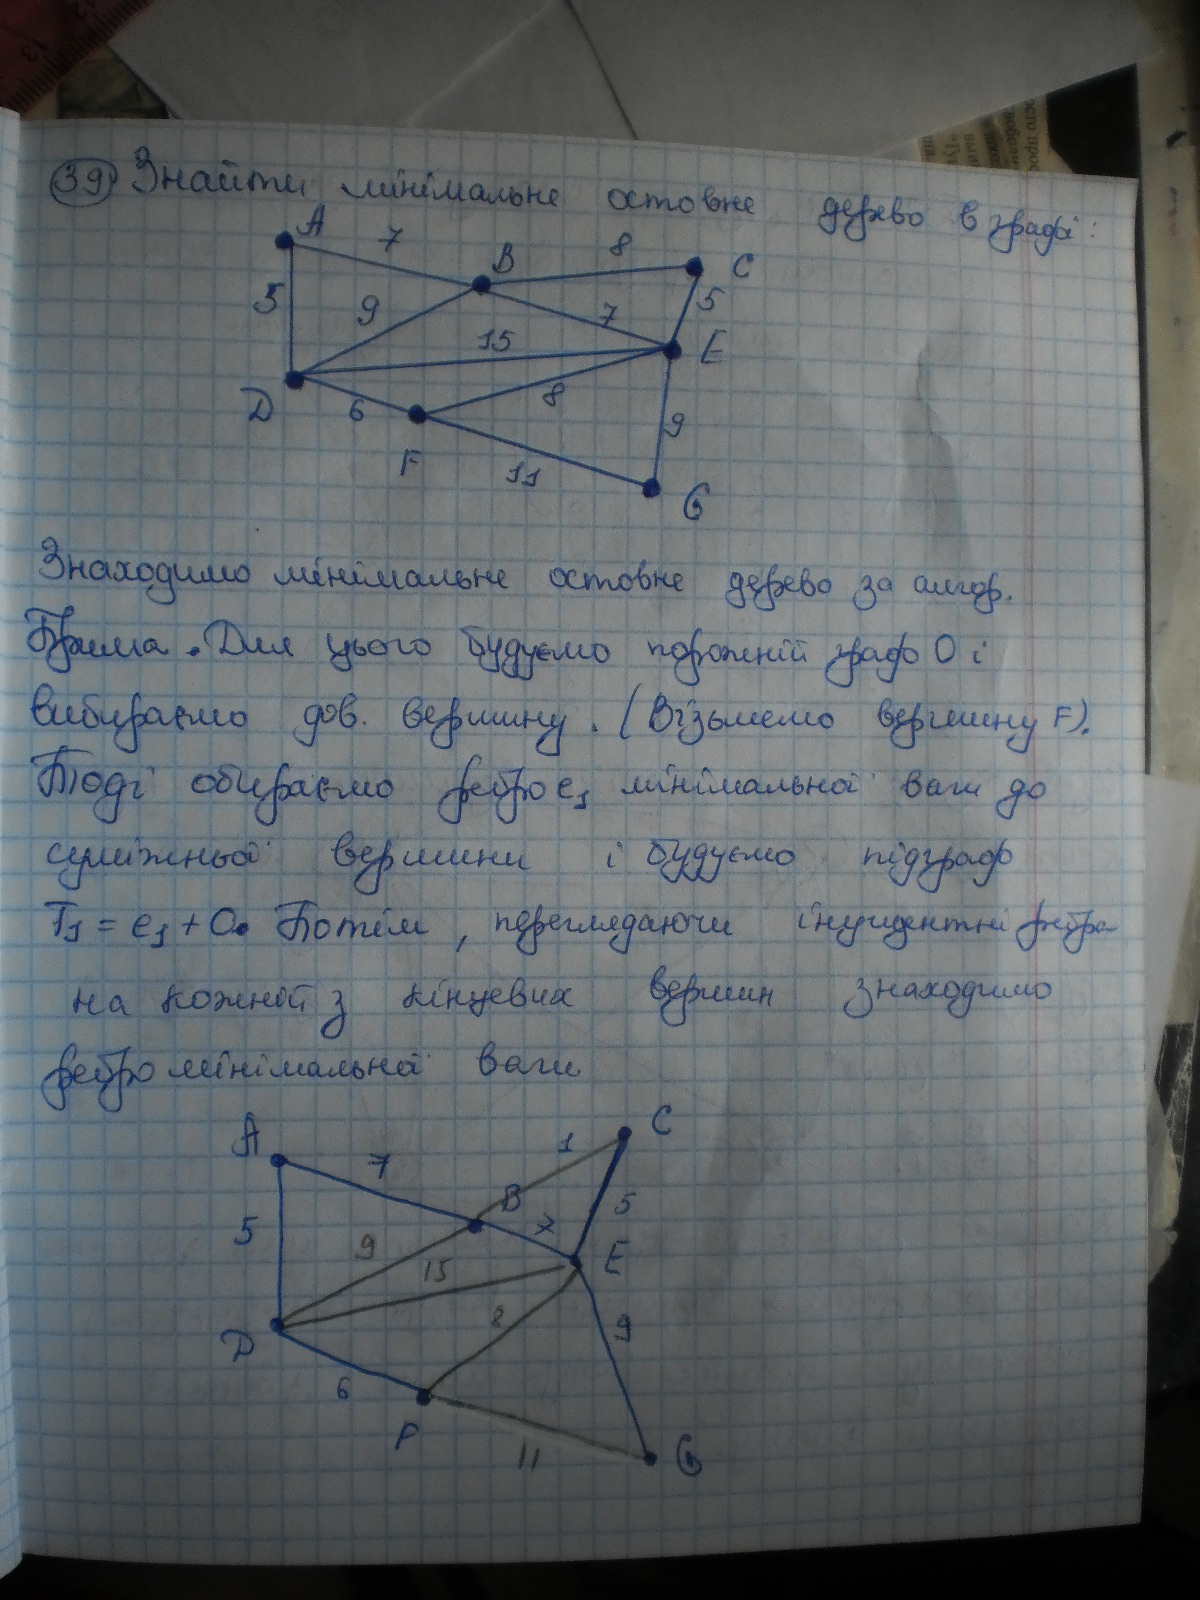 39) Знайти мінімальне остовне дерево в графі:
A 7 B 8 C
5 9 7 5
15 E
D 6 8 9
F 11 G
Знаходимо мінімальне остовне дерево за алгор.
Прима. Для цього будуємо порожній граф O і
вибираємо дов. вершину. (Візьмемо вершину F).
Тоді обираємо ребро e₁ мінімальної ваги до
суміжньої вершини і будуємо підграф
T₁ = e₁ + O. Потім, переглядаючи інцидентні ребра
на кожній з кінцевих вершин знаходимо
ребро мінімальної ваги
A 7 1 C
5 9 B 7 5
15 E
D 8 9
6 F
11 G